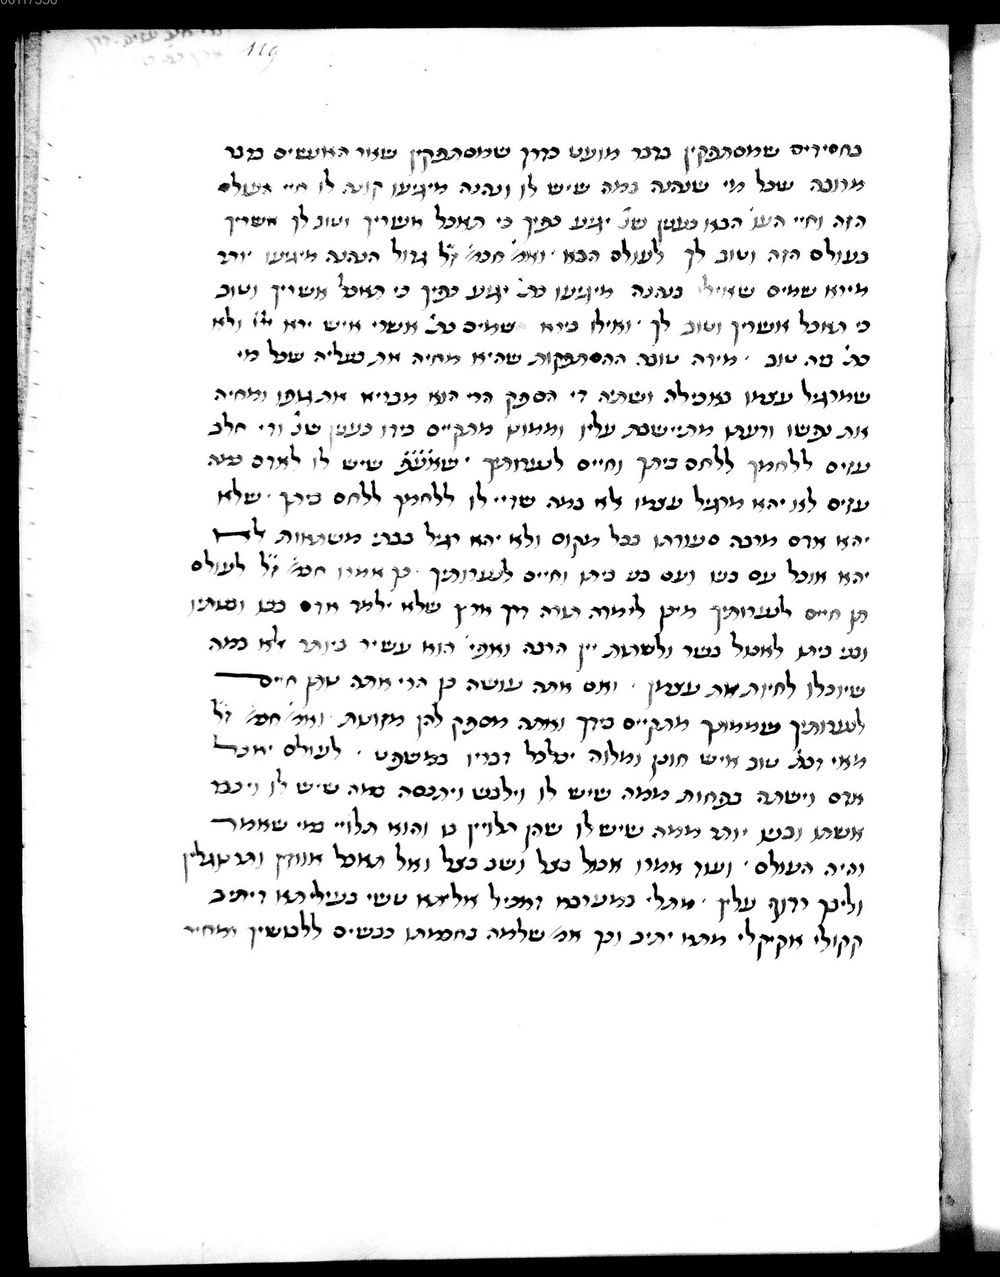 119
כחסידים שמסתפקין בדבר מועט כדרך שמסתפקין שאר האנשים בדבר
מרובה שכל מי שנהנה במה שיש לו ונהנה מיגיעו קונה לו חיי העולם
הזה וחיי העו' הבא כענין שנ' יגיע כפיך כי תאכל אשריך וטוב לך אשריך
בעולם הזה וטוב לך לעולם הבא ואמ' חכמ' ז"ל גדול הנהנה מיגיעו יותר
מירא שמים שאילו בנהנה מיגיעו כת' יגיע כפיך כי תאכל אשריך וטוב
כי תאכל אשריך וטוב לך ואילו בירא שמים כת' אשרי איש ירא ולא
כת' בה טוב מידה טובה ההסתפקות שהיא מחיה את בעליה שכל מי
שמרגיל עצמו באכילה ושתיה די הספק הרי הוא מבריא את גופו ומחיה
את נפשו ודעתו מתיישבת עליו וממונו מתקיים בידו כענין שנ' ודי חלב
עזים ללחמך ללחם ביתך וחיים לנערותיך שיש לו לאדם כמה
עזים לא יהא מרגיל עצמו לא במה שדיי לו ללחמך ללחם ביתך שלא
יהא אדם מרבה סעודתו בכל מקום ולא יהא רגיל בבתי משתאות לא
יהא אוכל עם בניו ועם בני ביתו וחיים לנערותיך כך אמרו חכמ' ז"ל לעולם
תן חיים לנערותיך מיכן לימדה תורה דרך ארץ שלא ילמד אדם בניו ובנותיו
ובני ביתו לאכול בשר ולשתות יין הרבה ואפי' הוא עשיר ביותר לא כמה
שיוכלו לחיות את עצמן ואם אתה עושה כן הרי אתה נותן חיים
לנערותיך שממונך מתקיים בידך ואתה מספק להן מזונות ואמ' חכמ' ז"ל
מאי דכת' טוב איש חונן ומלוה יכלכל דבריו במשפט לעולם יאכל
אדם וישתה בפחות ממה שיש לו וילבש ויתכסה במה שיש לו ויכבד
אשתו ובניו יותר ממה שיש לו שהן תלויין בו והוא תלוי במי שאמר
והיה העולם ועוד אמרו אכול בצל ושב בצל ואל תאכל אווזין ותרנגולין
וליבך רודף עליך מתלי במערבא דאכיל אליתא טשי בעיליתא דיתיב
קקולי אקיקלי מתא יתיב וכך אמ' שלמה בחכמתו כבשים ללבושיך ומחיר